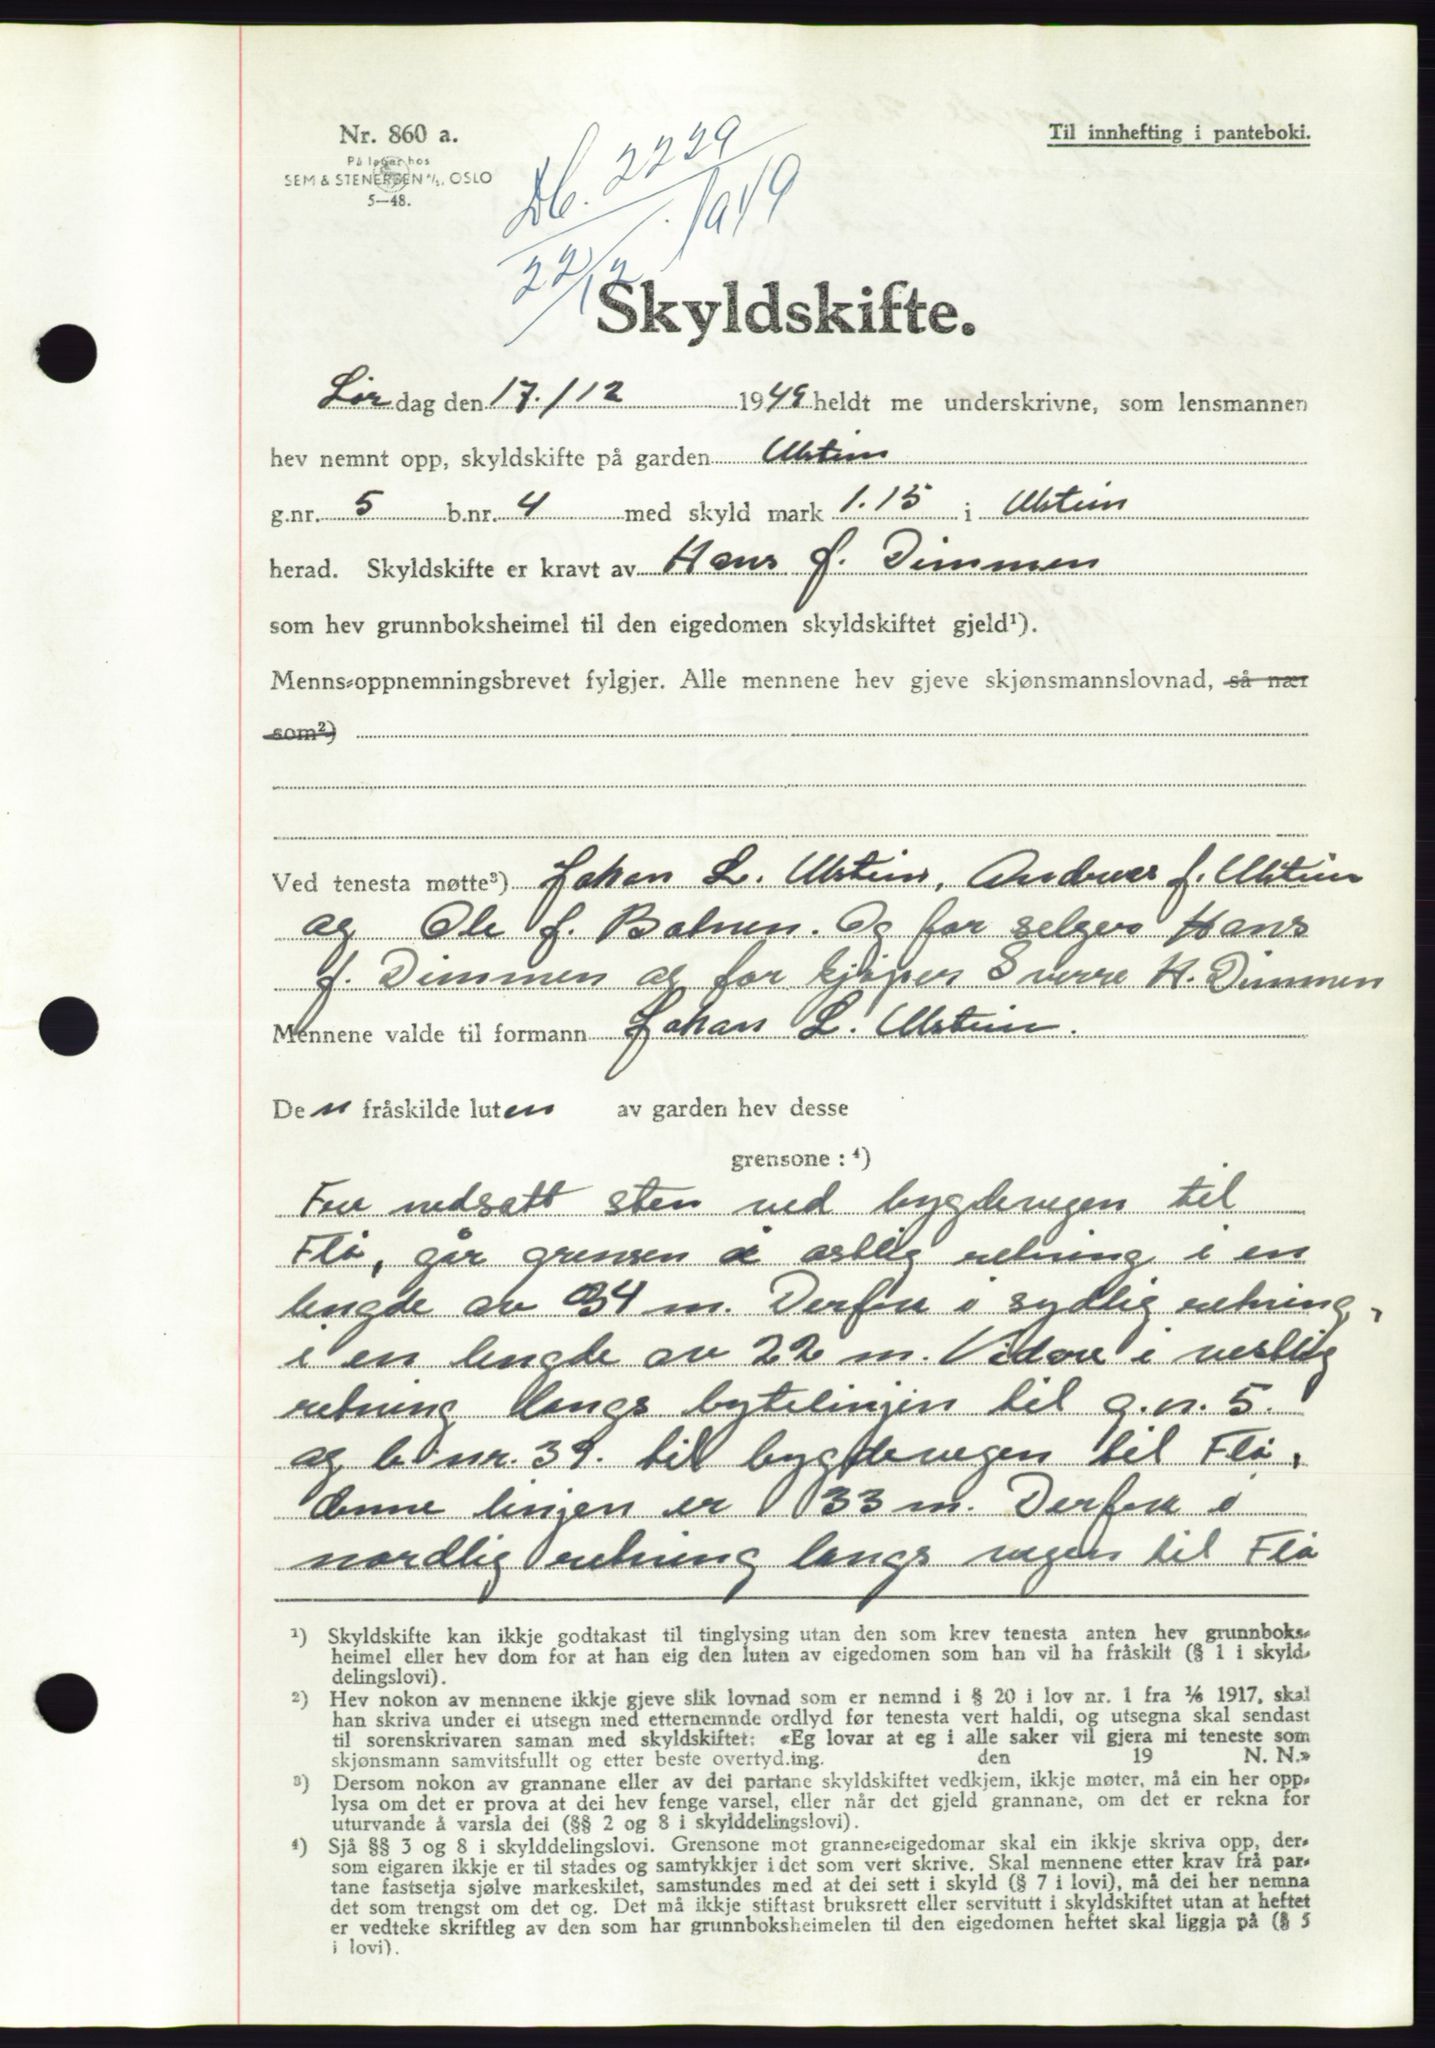 Nr. 860 a.
På lager hos
SEM & STENERSEN A/S. OSLO
5—48.
Til innhefting i panteboki.
Db. 2229
22/12. 1949
Skyldskifte.
Lørdag den 17./12 1949 heldt me underskrivne, som lensmannen
hev nemnt opp, skyldskifte på garden Ulstein
g.nr. 5 b.nr. 4 med skyld mark 1.15 i Ulstein
herad. Skyldskifte er kravt av Hans J. Dimmen
som hev grunnboksheimel til den eigedomen skyldskiftet gjeld¹).
Menns-oppnemningsbrevet fylgjer. Alle mennene hev gjeve skjønsmannslovnad, så nær
som²)
Ved tenesta møtte³) Johan L. Ulstein, Andreas J. Ulstein
og Ole J. Botnen. Og for selger Hans
J. Dimmen og for kjøper Sverre H. Dimmen
Mennene valde til formann Johan L. Ulstein.
Den fråskilde luten av garden hev desse
grensone : ⁴)
Fra nedsatt sten ved bygdevegen til
Flø, går grensen i østlig retning i en
lengde av 34 m. Derfra i sydlig retning,
i en lengde av 22 m. Vidare i vestlig
retning langs bytelinjen til g.n. 5.
og b.nr. 39. til bygdevegen til Flø,
denne linjen er 33 m. Derfra i
nordlig retning langs vegen til Flø
¹) Skyldskifte kan ikkje godtakast til tinglysing utan den som krev tenesta anten hev grunnboks-
heimel eller hev dom for at han eig den luten av eigedomen som han vil ha fråskilt (§ 1 i skyld-
delingslovi).
²) Hev nokon av mennene ikkje gjeve slik lovnad som er nemnd i § 20 i lov nr. 1 fra 1/6 1917, skal
han skriva under ei utsegn med etternemnde ordlyd før tenesta vert haldi, og utsegna skal sendast
til sorenskrivaren saman med skyldskiftet: «Eg lovar at eg i alle saker vil gjera mi teneste som
skjønsmann samvitsfullt og etter beste overtyd.ing. den 19 N. N.»
³) Dersom nokon av grannane eller av dei partane skyldskiftet vedkjem, ikkje møter, må ein her opp-
lysa om det er prova at dei hev fenge varsel, eller når det gjeld grannane, om det er rekna for
uturvande å varsla dei (§§ 2 og 8 i skylddelingslovi).
⁴) Sjå §§ 3 og 8 i skylddelingslovi. Grensone mot granne-eigedomar skal ein ikkje skriva opp, der-
som eigaren ikkje er til stades og samtykkjer i det som vert skrive. Skal mennene etter krav frå par-
tane fastsetja sjølve markeskilet, samstundes med at dei sett i skyld (§ 7 i lovi), må dei her nemna
det som trengst om det og. Det må ikkje stiftast bruksrett eller servitutt i skyldskiftet utan at heftet
er vedteke skriftleg av den som har grunnboksheimelen til den eigedomen heftet skal liggja på (§ 5
i lovi).